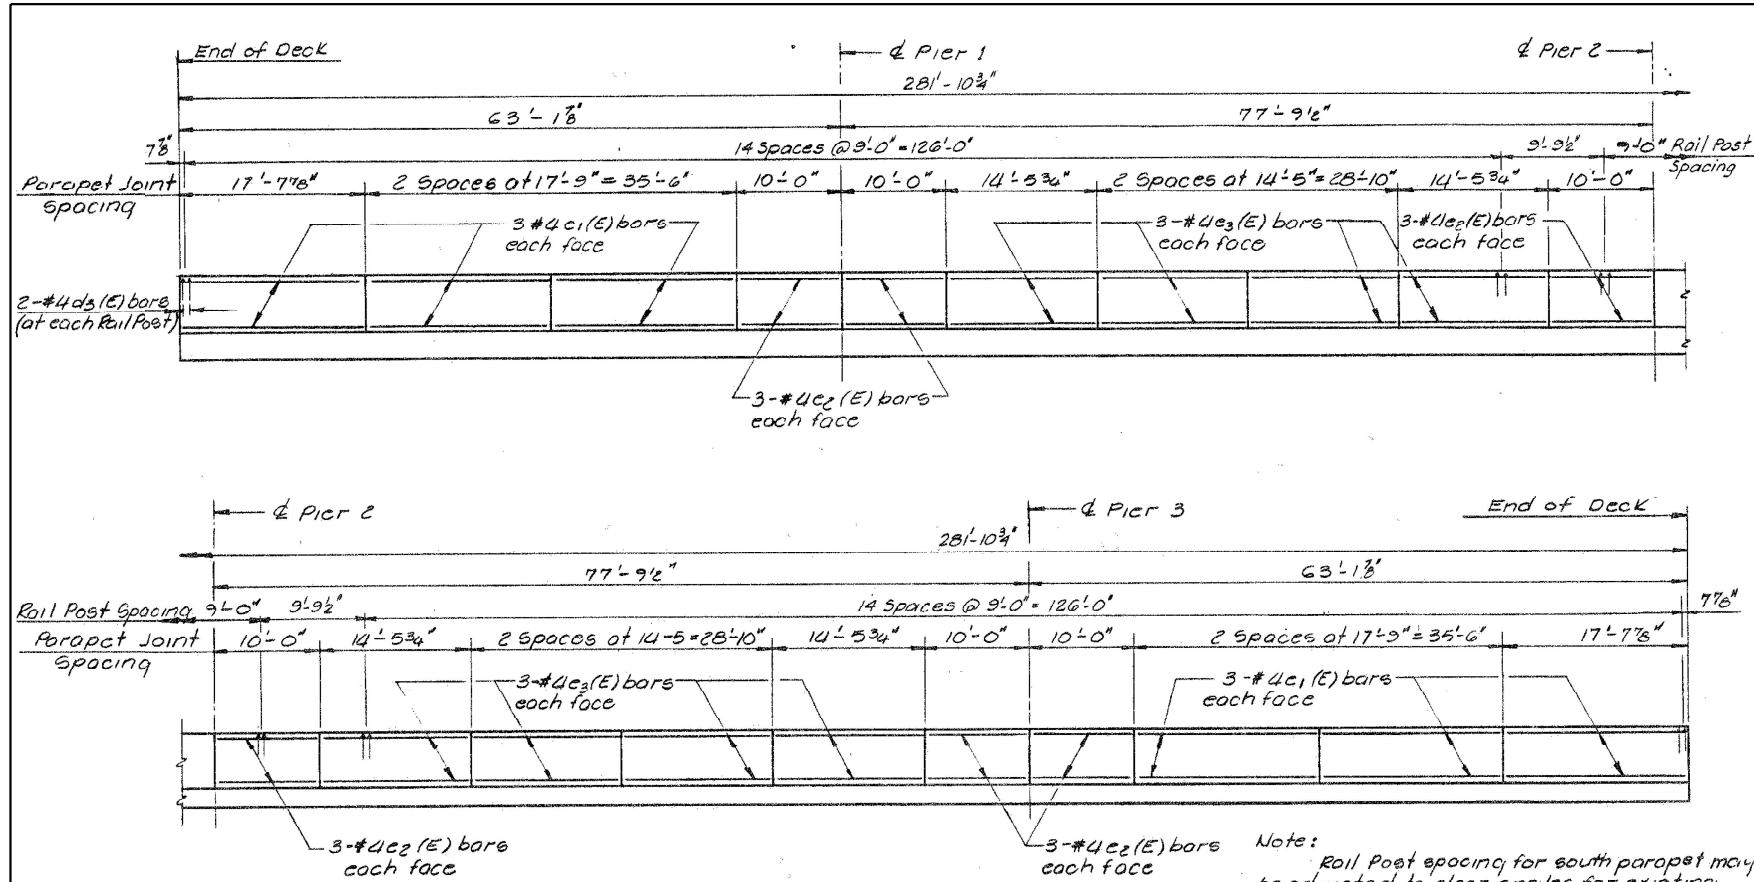 End of Deck
℄ Pier 1
℄ Pier 2
281'-10¾"
63'-1⅞"
77'-9½"
7⅞"
14 Spaces @ 9'-0" = 126'-0"
9'-9½"
9'-0" Rail Post Spacing
Parapet Joint Spacing
17'-7⅞"
2 Spaces at 17'-9" = 35'-6"
10'-0"
10'-0"
14'-5¾"
2 Spaces at 14'-5" = 28'-10"
14'-5¾"
10'-0"
3 #4 e1 (E) bars
each face
3-#4e3 (E) bars
each face
3-#4e2 (E) bars
each face
2-#4 d3 (E) bars
(at each Rail Post)
3-#4e2 (E) bars
each face
℄ Pier 2
℄ Pier 3
End of Deck
281'-10¾"
77'-9½"
63'-1⅞"
Rail Post Spacing
9'-0"
9'-9½"
14 Spaces @ 9'-0" = 126'-0"
7⅞"
Parapet Joint
Spacing
10'-0"
14'-5¾"
2 Spaces at 14-5 = 28'-10"
14'-5¾"
10'-0"
10'-0"
2 Spaces at 17'-9" = 35'-6"
17'-7⅞"
3-#4e3 (E) bars
each face
3-#4e1 (E) bars
each face
3-#4e2 (E) bars
each face
3-#4e2 (E) bars
each face
Note:
Rail Post spacing for south parapet may